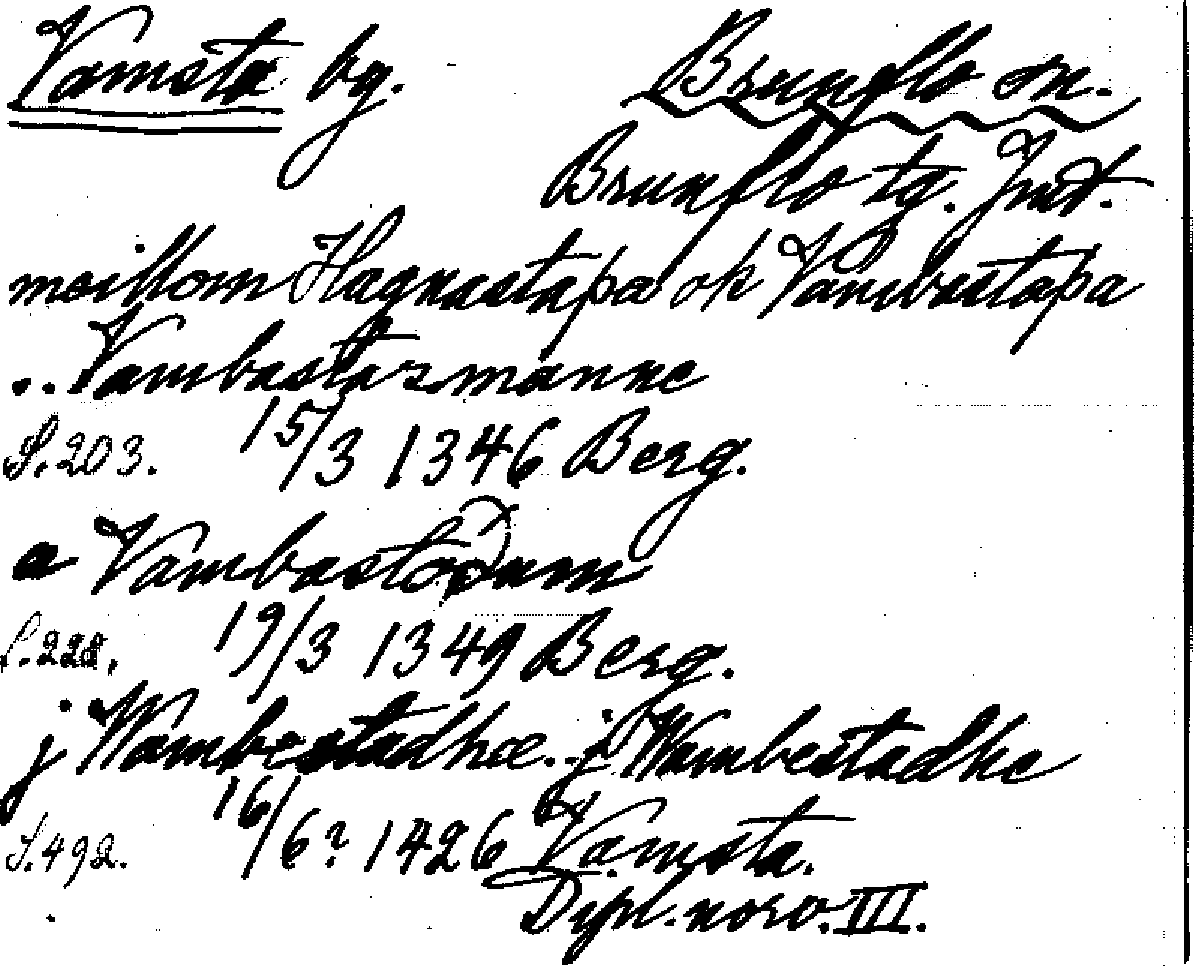 Vamsta bg. Brunflo sn.
Brunflo tg. Jmt.
meillom Hagnastaþa ok Vambastaþa
.. Vambastarmanne
S. 203. 15/3 1346 Berg.
a Vambastodum
S. 228. 19/3 1349 Berg.
j Wambestadhe .. j Wambestadhe
S. 492. 16/6? 1426 Vamsta.
Dipl. norv. III.